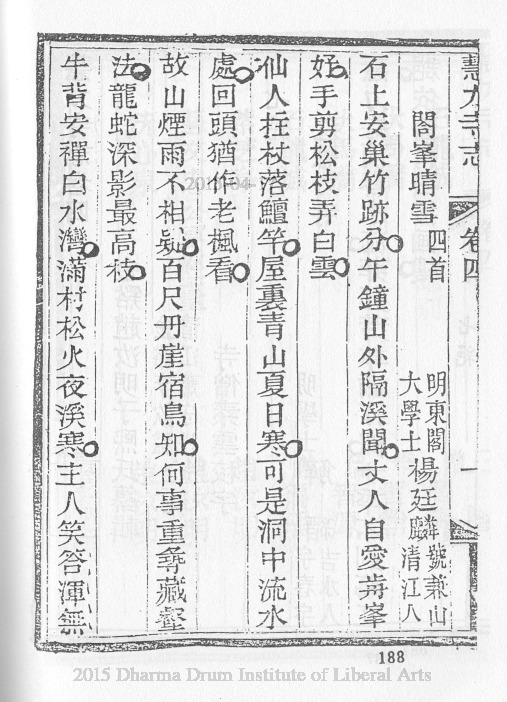 慧力寺志 卷四 一
閤峯晴雪 四首 明東閣大學士 楊廷麟 號兼山清江人
石上安巢竹跡分午鐘山外隔溪聞丈人自愛峯
好手剪松枝弄白雲
仙人拄杖落鱣竿屋裏青山夏日寒可是洞中流水
處回頭猶作老楓看
故山煙雨不相疑百尺丹崖宿鳥知何事重尋藏壑
法龍蛇深影最高枝
牛背安禪白水灣滿村松火夜溪寒主人笑答渾無
188
2015 Dharma Drum Institute of Liberal Arts